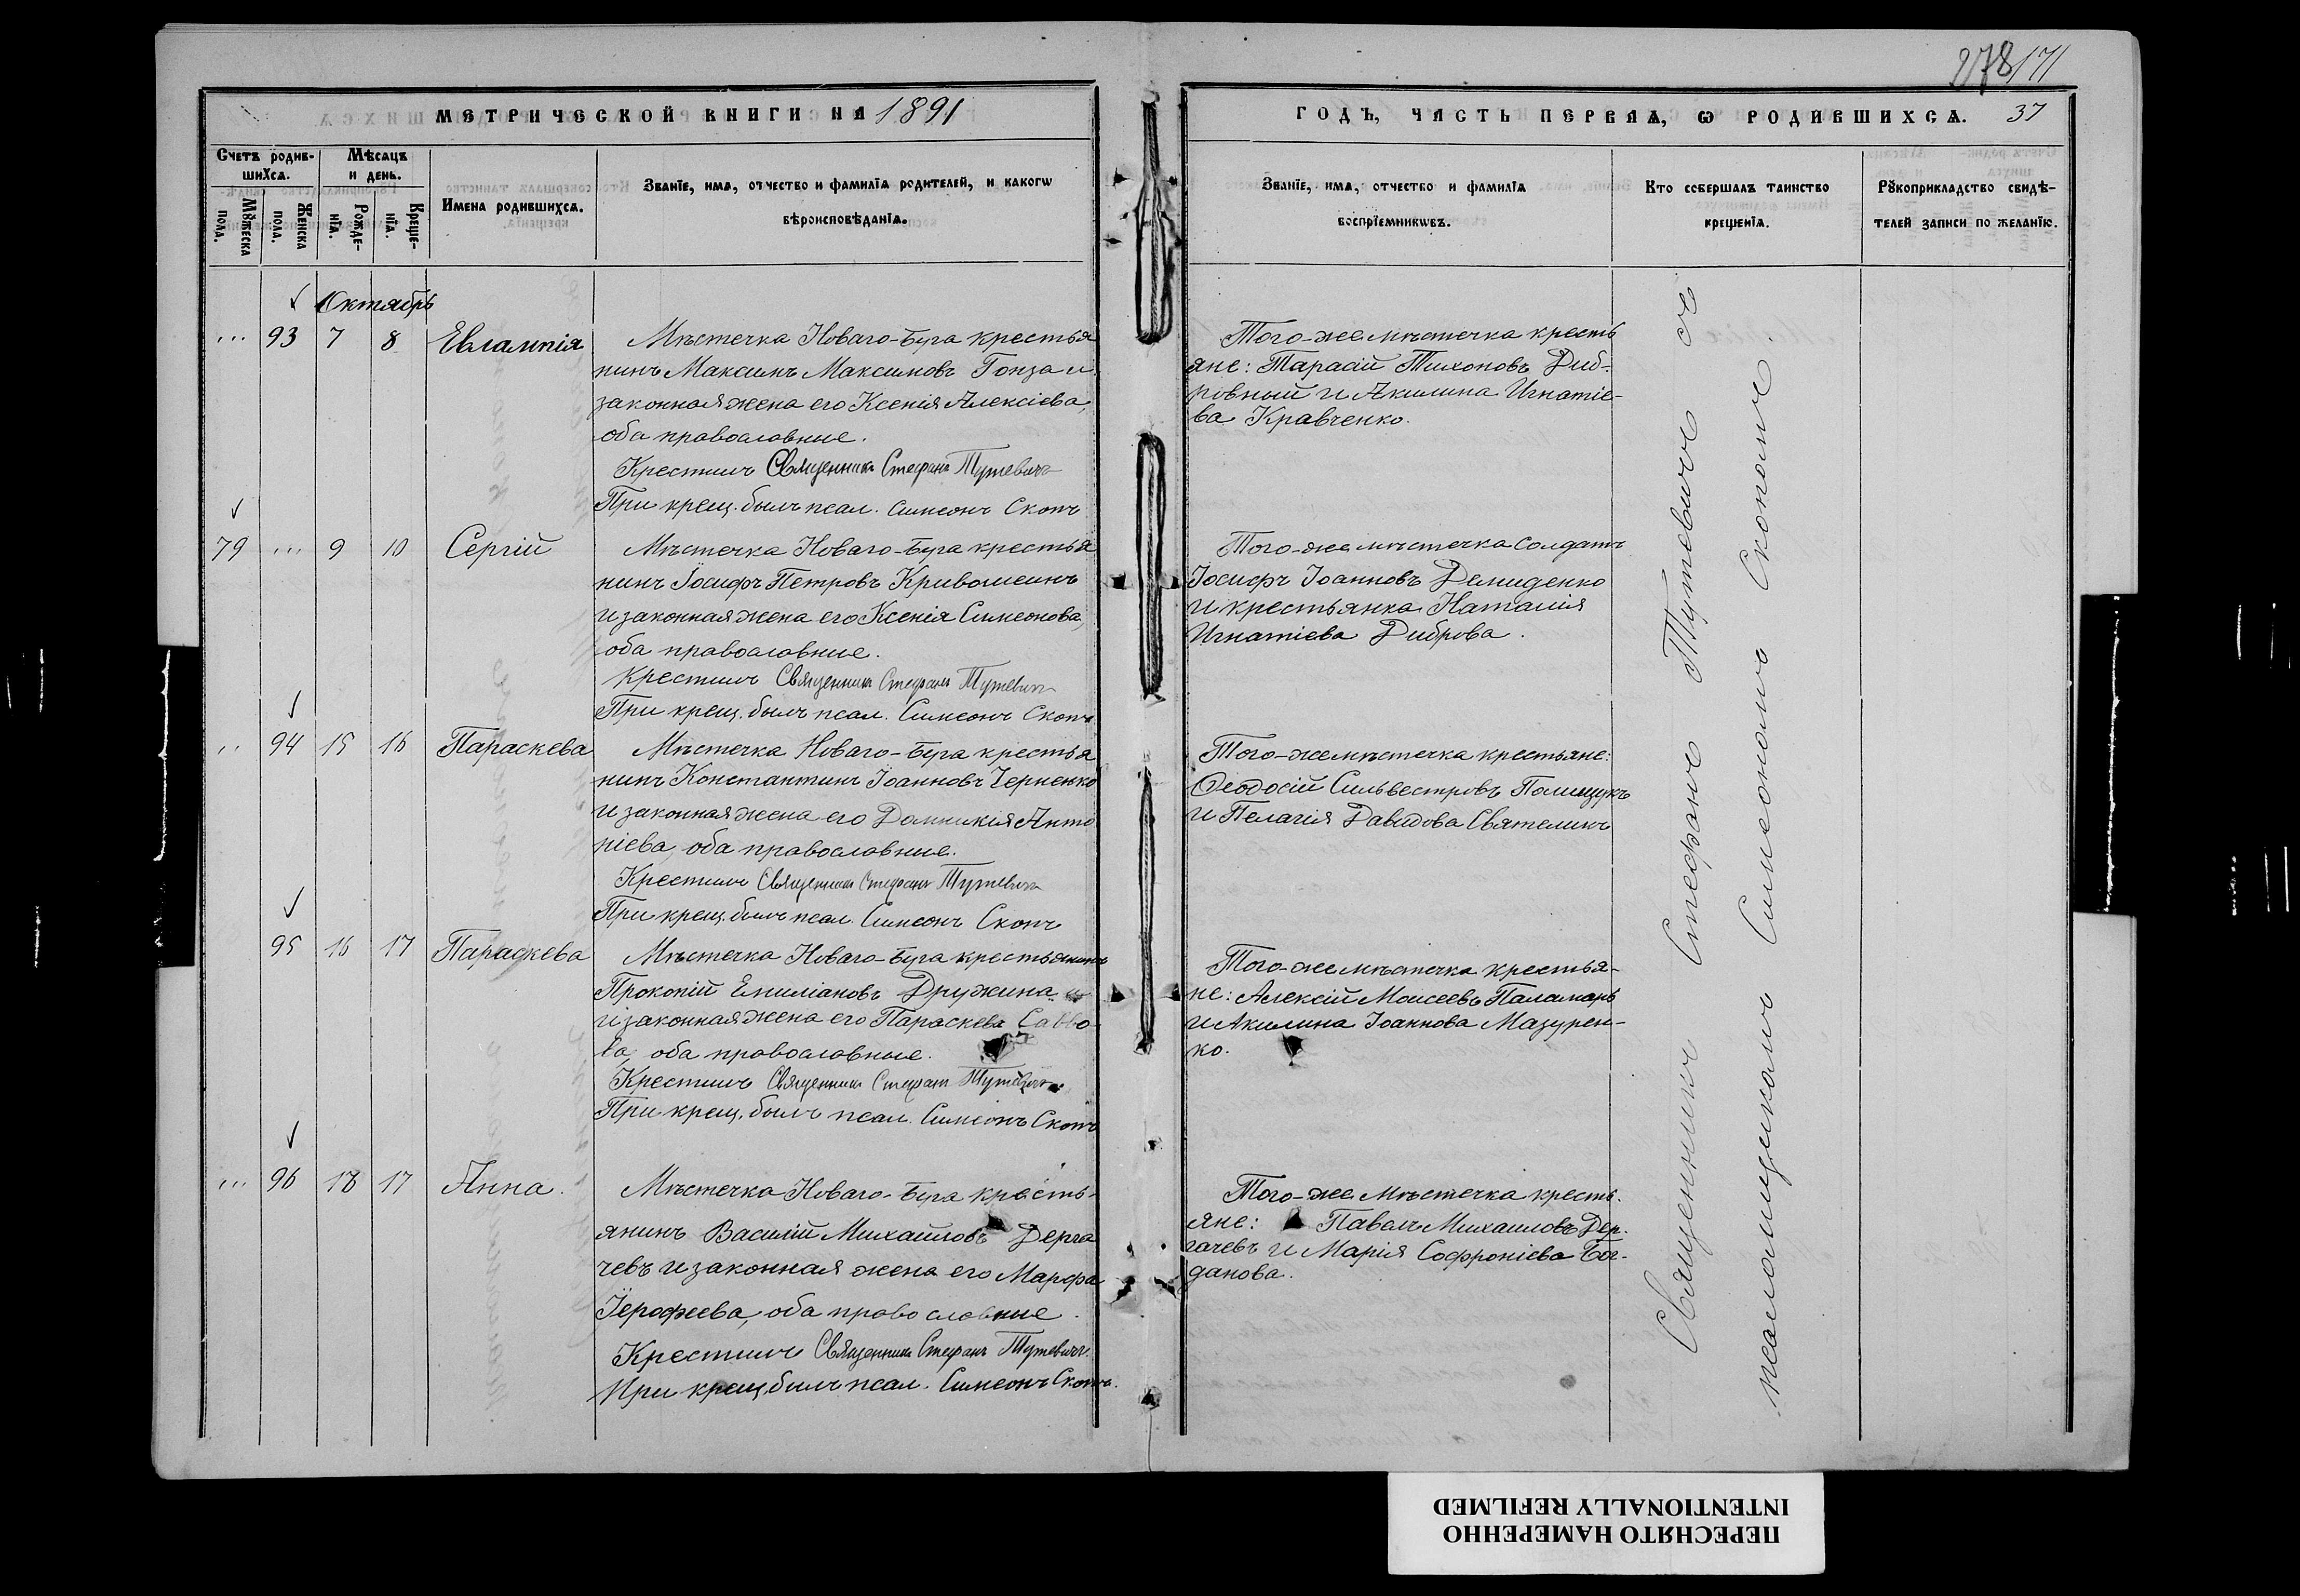 278/71
МЕТРИЧЕСКОЙ КНИГИ НА 1891
ГОДЪ, ЧАСТЬ ПЕРВАѦ, Ѡ РОДИВШИХСѦ. 37
Счетъ родив-
шихсѧ.
Мѣсѧцъ
и день.
Мꙋжеска
пола.
Женска
пола.
Рожде-
нїѧ.
Креще-
нїѧ.
Имена родившихсѧ.
Званїе, имѧ, отчество и фамилїѧ родителей, и какогѡ
вѣроисповѣданїѧ.
Званїе, имѧ, отчество и фамилїѧ
воспрїемникѡвъ.
Кто совершалъ таинство
крещенїѧ.
Рꙋкоприкладство свидѣ-
телей записи по желанїю.
Октябрь
... 93 7 8 Евлампія
Мѣстечка Новаго-Буга крестья
нинъ Максимъ Максимовъ Гонза и
законная жена его Ксенія Алексіева,
оба православные.
Крестилъ Священникъ Стефанъ Тутевичъ
При крещ. былъ псал. Симеонъ Скопъ
Того-же мѣстечка кресть
яне: Тарасій Тихоновъ Диб-
ровный и Акилина Игнатіе-
ва Кравченко.
79 ... 9 10 Сергій
Мѣстечка Новаго-Буга крестья
нинъ Іосифъ Петровъ Кривошеинъ
и законная жена его Ксенія Симеонова,
оба православные.
Крестилъ Священникъ Стефанъ Тутевичъ
При крещ. былъ псал. Симеонъ Скопъ
Того-же мѣстечка солдатъ
Іосифъ Іоанновъ Демиденко
и крестьянка Наталія
Игнатіева Диброва.
.. 94 15 16 Параскева
Мѣстечка Новаго-Буга крестья
нинъ Константинъ Іоанновъ Черненко
и законная жена его Домникія Анто
ніева, оба православные.
Крестилъ Священникъ Стефанъ Тутевичъ
При крещ. былъ псал. Симеонъ Скопъ
Того-же мѣстечка крестьяне:
Ѳеодосій Сильвестровъ Полищукъ
и Пелагія Давидова Святеликъ
95 16 17 Параскева
Мѣстечка Новаго-Буга крестьянинъ
Прокопій Емиліановъ Дружина
и законная жена его Параскева Савво-
ва, оба православные.
Крестилъ Священникъ Стефанъ Тутевичъ
При крещ. былъ псал. Симеонъ Скопъ
Того-же мѣстечка крестья-
не: Алексій Моисеевъ Паламарь
и Акилина Іоаннова Мазурен-
ко.
... 96 18 17 Анна.
Мѣстечка Новаго-Буга кресть-
янинъ Василій Михайловъ Дерга
чевъ и законная жена его Марфа
Іерофеева, оба православные.
Крестилъ Священникъ Стефанъ Тутевичъ
При крещ. былъ псал. Симеонъ Скопъ.
Того-же мѣстечка кресть-
яне: Павелъ Михаиловъ Дер-
гачевъ и Марія Софроніева Бог-
данова.
Священникъ Стефанъ Тутевичъ съ
псаломщикомъ Симеономъ Скопомъ.
ПЕРЕСНЯТО НАМЕРЕННО
INTENTIONALLY REFILMED